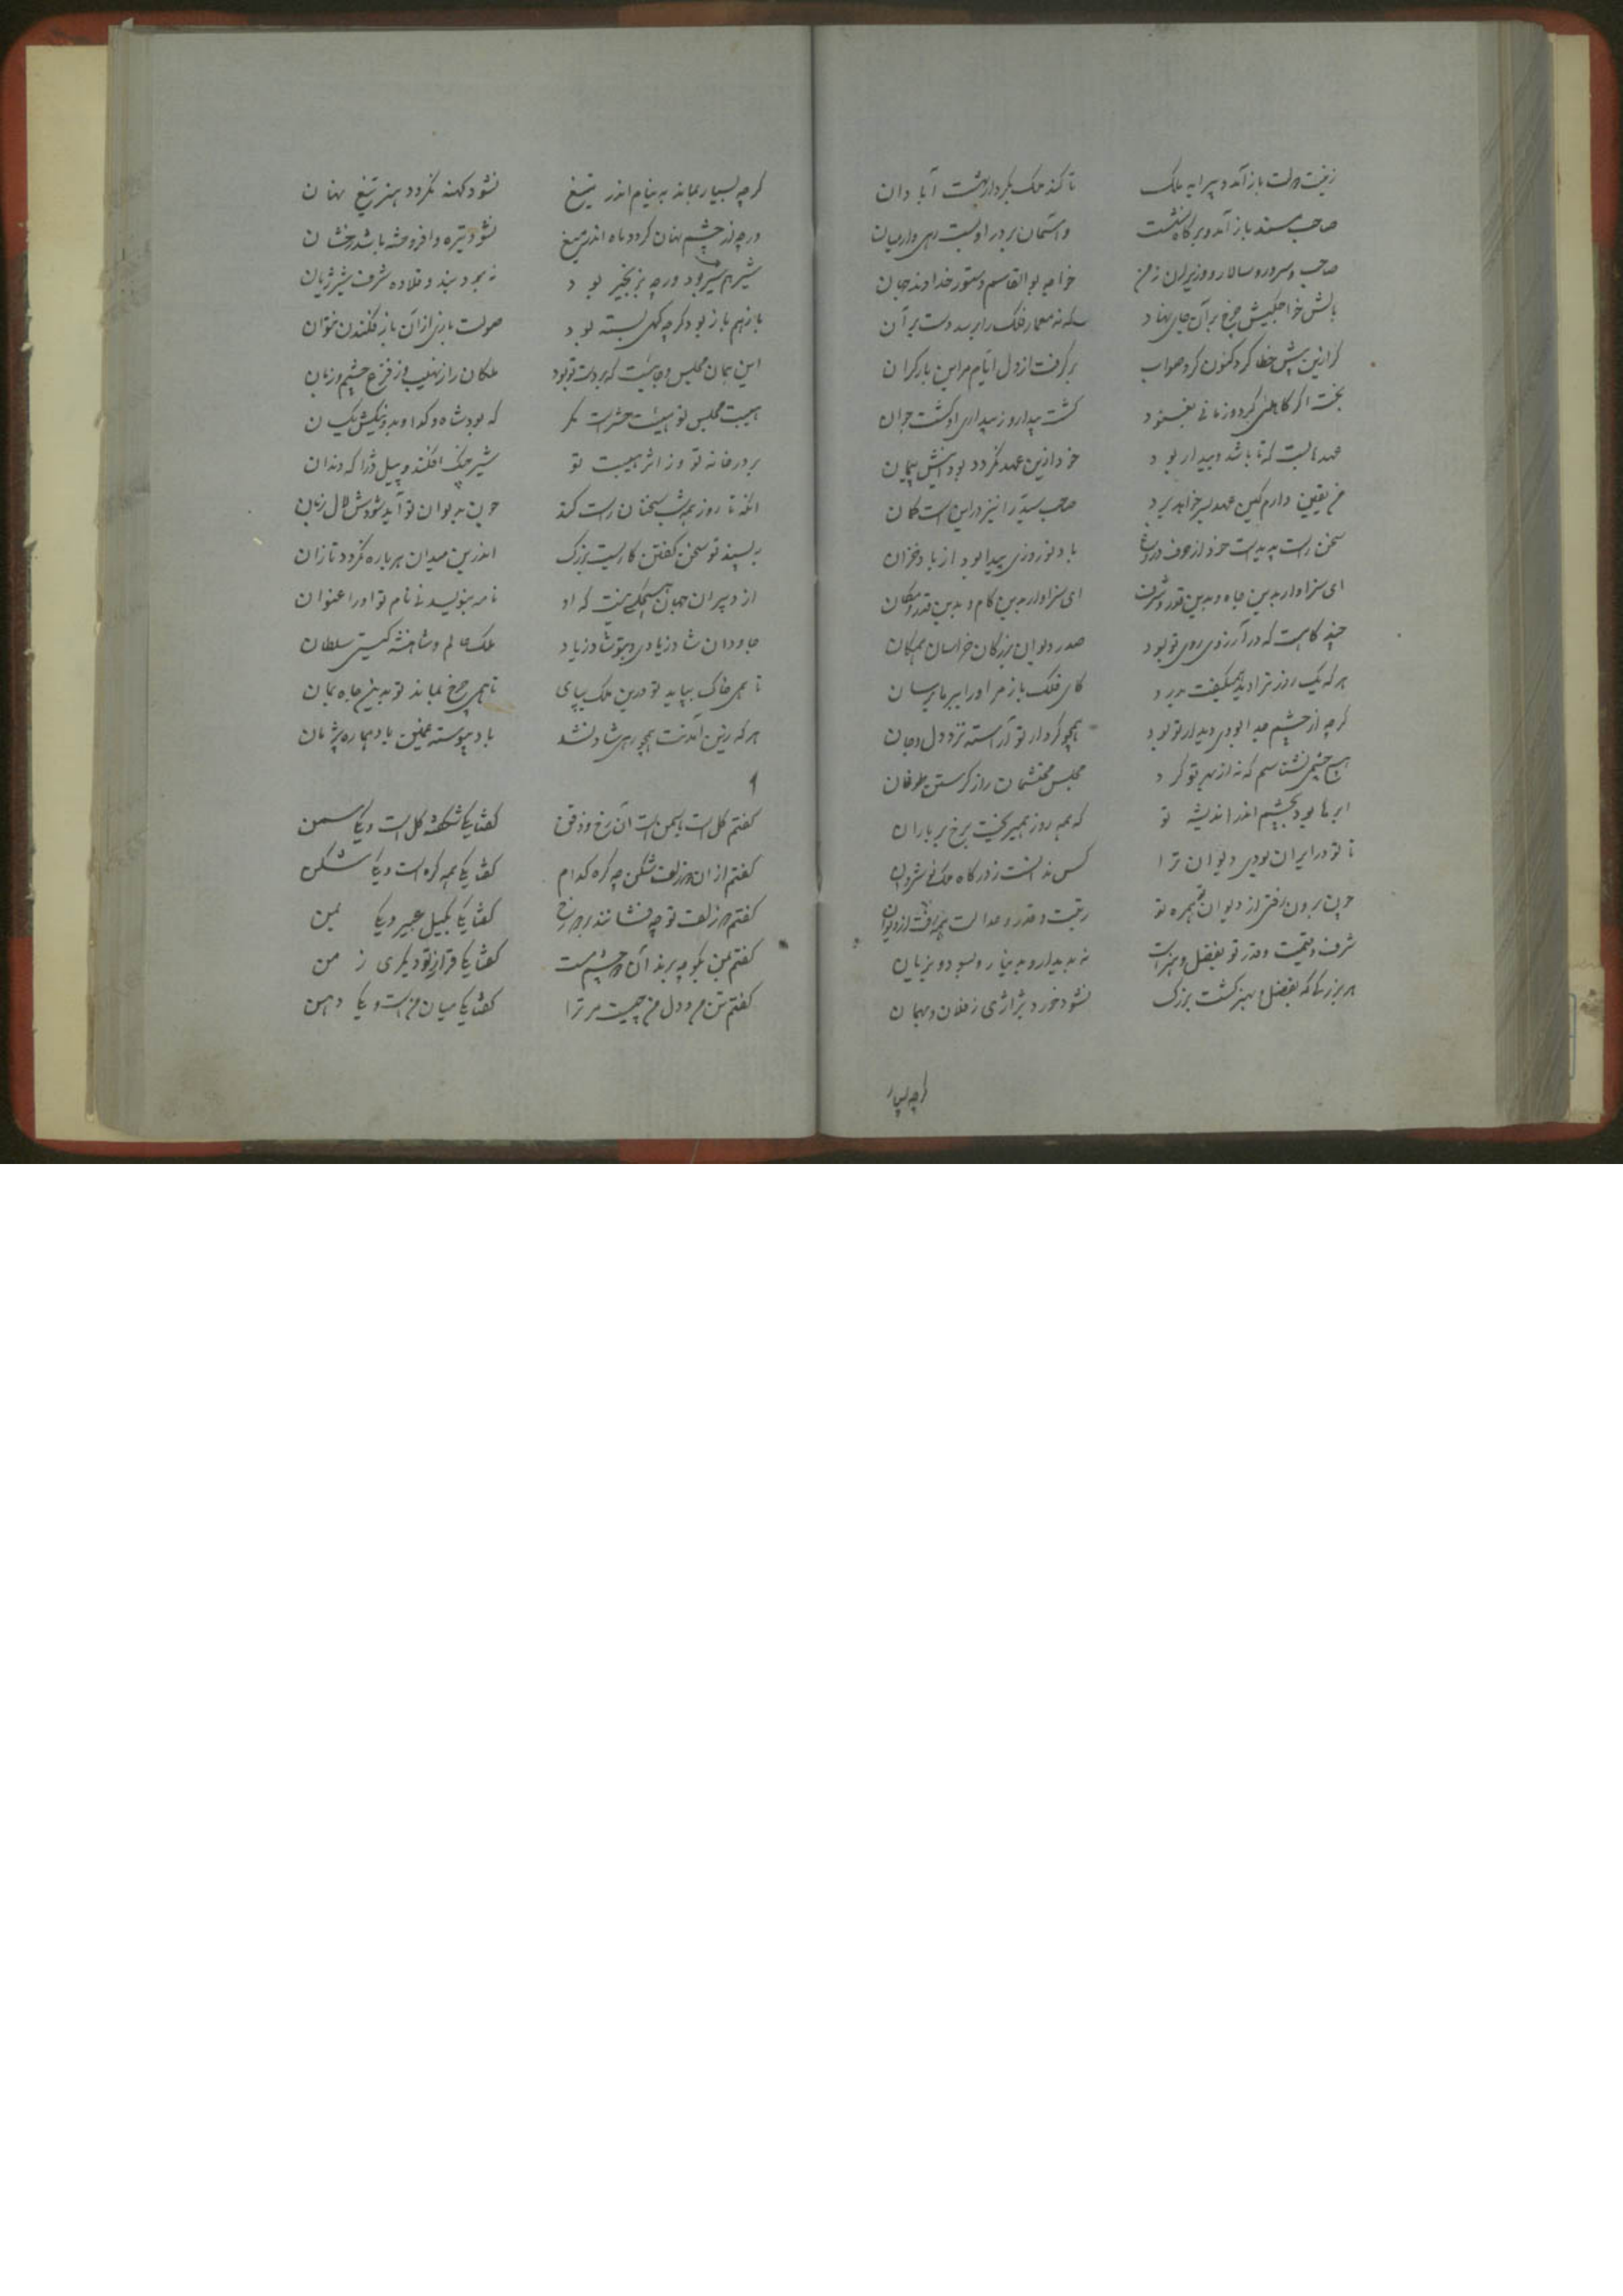 زینت دولت باز آمد و پیرایه ملک
تا کند ملک بکردار بهشت آبادان
صاحب سید باز آمد و بر گاه نشست
و آسمان بر در او بست رهی وار میان
صاحب و سرور و سالار و وزیران زمن
خواجه بوالقاسم دستور خداوند جهان
بالش خواجگیش چرخ بر آن جای نهاد
که نه معمار فلک را برسد دست بر آن
گر ازین پیش خطا کرد کنون کرد صواب
برگرفت از دل ایام مر این بار گران
بخت اگر کاهلی کرد و زمانی بغنود
گشت بیدار و ز بیداری او گشت جوان
عهدهاییست که تا باشد و بیدار بود
خود ازین عهد نگردد بودانیش پیمان
من یقین دارم کاین عهد بسر خواهد برد
صاحب سید را نیز درین است گمان
سخن راست پدیدست خود از حرف دروغ
باد نوروزی پیدا بود از باد خزان
ای سزاوار بدین جاه و بدین قدر و شرف
ای سزاوار بدین کام و بدین قدر و مکان
چند گاهست که در آرزوی روی تو بود
صدر دیوان بزرگان خراسان همگان
هر که یک روز ترا دید همیگفت بدرد
کای فلک باز مر او را ببر ما برسان
گرچه از چشم جدا بودی دیدار تو بود
همچو کردار تو آراسته نزد دل و جان
هیچ چشمی نشناسم که نه از بهر تو کرد
مجلس محتشمان را ز گرستن طوفان
ابرها بود بچشم اندر اندیشه تو
که همه روز همیریخت برخ بر باران
تا تو در ایران بودی دیوان ترا
کس ندانست ز درگاه ملک نوشروان
چون برون رفتی از دیوان همره تو
زینت و قدر و عدالت همه رفت از دیوان
شرف و قیمت و قدر تو بفضل و هنرست
نه بدیدار و بدینار و بسود و بزیان
هر بزرگی که بفضل و بهنر گشت بزرگ
نشود خورد بژاژی ز فلان و بهمان
گرچه بسیار
گرچه بسیار بماند به نیام اندر تیغ
نشود کهنه نگردد هنر تیغ نهان
ورچه از چشم نهان گردد ماه اندر میغ
نشود تیره و افروخته باشد رخشان
شیر هم شیر بود ورچه بزنجیر بود
نه برد بند و قلاده شرف شیر ژیان
باز هم باز بود گرچه که بسته بود
صولت بازی از آن باز فکندن نتوان
این همان مجلس و جاییست که بودست تو بود
ملکان را ز نهیب وز فزع چشم و زبان
هیبت مجلس تو هیبت حشرست مگر
که بود شاه و گدا و بد و نیکش یکسان
بر در خانه تو وز اثر هیبت تو
شیر چنگ افکند و پیل دژاگه دندان
آنکه تا روز همه شب سخنان راست کند
چون بدیوان تو آید شودش لال زبان
بپسند تو سخن گفتن کاریست بزرگ
اندرین میدان هر باره نگردد تازان
از دبیران جهان هیچکسی نیست که او
نامه بنویسد نی نام تو او را عنوان
جاودان شاد زیادی و بتو شاد زیاد
ملک عالم و شاهنشه گیتی سلطان
تا همی خاک بپاید تو درین ملک بپای
تا همی چرخ بماند تو بدین جاه بمان
هر که زین آمدنت همچو رهی شاد نشد
باد پیوسته غمین باد هماره پژمان
گفتم گل است یا سمنست آن رخ و ذقن
گفتا یکی شکفته گل است و یکی سمن
گفتم از آن دو زلف شکن چه گره کدام
گفتا یکی همه گره است و یکی شکن
گفتم دو زلف تو چه فشانند بر دو رخ
گفتا یکی بکیل عبیر و یکی بمن
گفتم ز من بگو چه برند آن دو چشم مست
گفتا یکی قرار تو دیگری ز من
گفتم تن من و دل من چیست مر ترا
گفتا یکی میان منست و یکی دهن